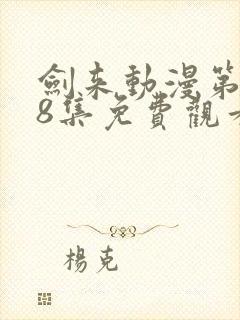 劍來動漫第
8集免費觀看
楊克